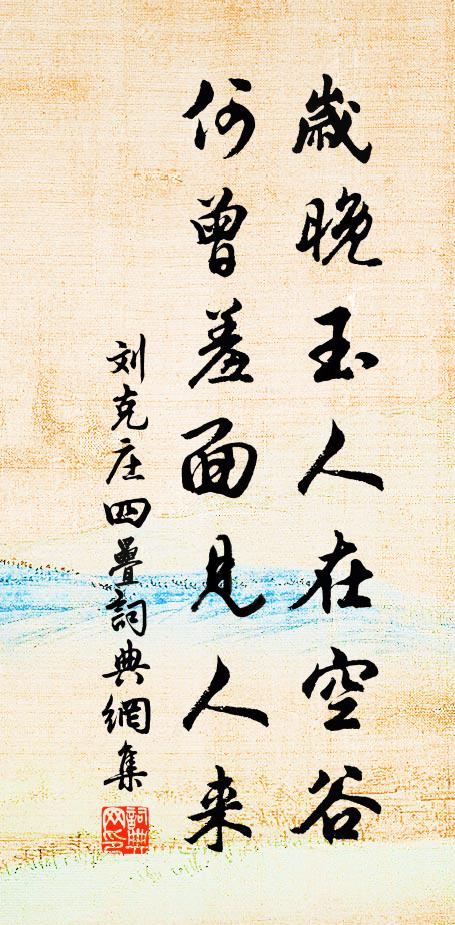 歲晚玉人在空谷
何曾羞面見人来
刘克庄四疊詞典網集
詞典
网印